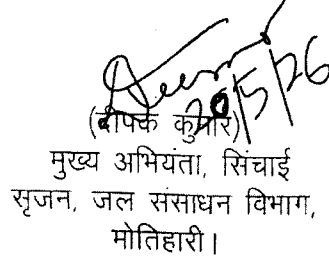 20/5/26
(दीपक कुमार)
मुख्य अभियंता, सिंचाई
सृजन, जल संसाधन विभाग,
मोतिहारी।